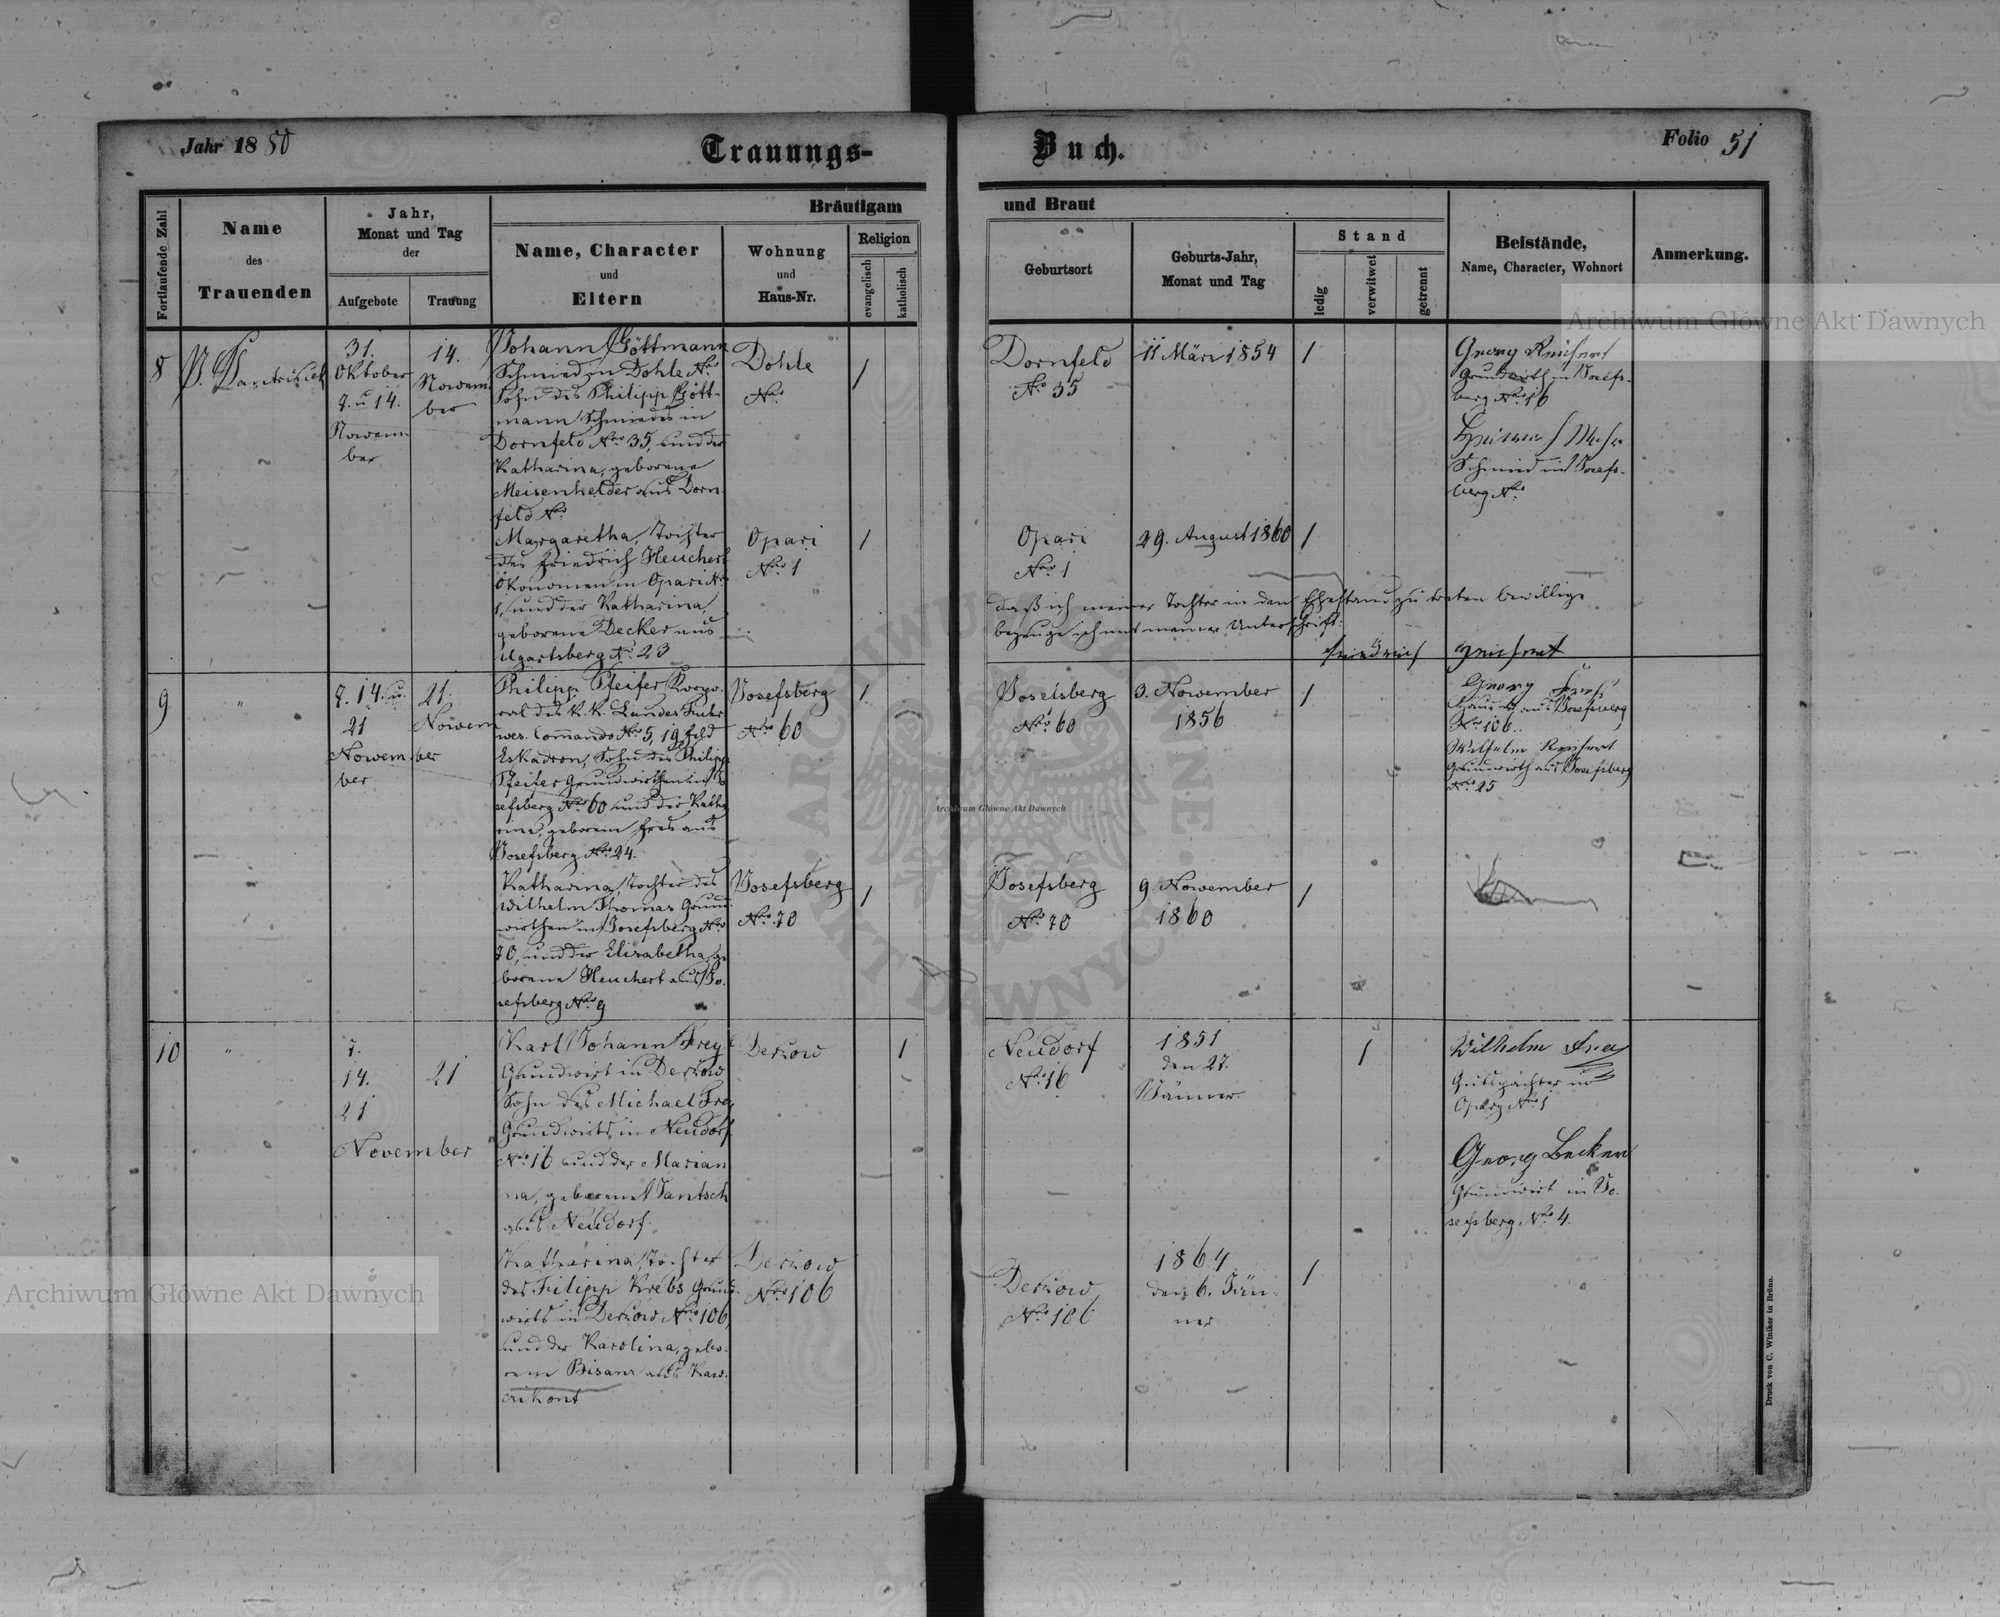 Jahr 1880
Trauungs-
Buch.
Folio 51
Fortlaufende Zahl
Name
des
Trauenden
Jahr,
Monat und Tag
der
Aufgebote
Trauung
Bräutigam
Name, Character
und
Eltern
Wohnung
und
Haus-Nr.
Religion
evangelisch
katholisch
und Braut
Geburtsort
Geburts-Jahr,
Monat und Tag
Stand
ledig
verwitwet
getrennt
Beistände,
Name, Character, Wohnort
Anmerkung.
8
31.
Oktober
7. u 14.
Nowem-
ber
14.
Nowem-
ber
Johann Göttmann
Schmied in Dohle Nro
Sohn des Philipp Gött-
mann Schmiedes in
Dornfeld Nro 35, und der
Katharina, geborene
Meisenhelder aus Dorn-
feld Nro
Dohle
Nro
/
Dornfeld
Nro 35
11 März 1854
/
Georg Reichert
Grundwirth in Josefs-
berg Nro 16
Schmied in Josefs-
berg Nro
Margaretha, Tochter
des Friedrich Heuchert
Ökonomen in Opari Nro
1, und der Katharina,
geborene Decker aus
Ugartsberg Nro 23
Opari
Nro 1
/
Opari
Nro 1
29. August 1860
/
daß ich meiner Tochter in den Ehestand zu treten bewillige
bezeuge ich mit meiner Unterschrift:
Friedrich Heuchert
9
"
7. 14. u.
21
Nowem-
ber
21.
Nowem
ber
Philipp Pfeifer Korpo-
ral des K. K. Landes Fuhr-
wes. Commando Nro 5, 19 Feld
Eskadron, Sohn des Philipp
Pfeifer Grundwirthen in Jo-
sefsberg Nro 60 und der Katha-
rina, geborene Fres aus
Josefsberg Nro 24.
Josefsberg
Nro 60
/
Josefsberg
Nro 60
3. Nowember
1856
/
Georg
aus Josefsberg
Nro 106.
Wilhelm Reichert
Grundwirth aus Josefsberg
Nro 25
Katharina, Tochter des
Wilhelm Thomas Grund-
wirthen in Josefsberg Nro
70, und der Elisabetha ge-
borene Heuchert aus Jo-
sefsberg Nro 9
Josefsberg
Nro 70
/
Josefsberg
Nro 70
9. Nowember
1860
/
10
"
7.
14.
21
November
21
Karl Johann Frey
Grundwirt in Derzow
Sohn des Michael Frey
Grundwirts in Neudorf
Nro 16 und der Marian-
na, geborene Jantsch
aus Neudorf.
Derzow
/
Neudorf
Nro 16
1851
den 27.
Jänner
/
Wilhelm Frey
Gutspächter in
Opary Nro 1
Georg Becker
Grundwirt in Jo-
sefsberg Nro 4.
Katharina, Tochter
des Filipp Krebs Grund-
wirts in Derzow Nro 106,
und der Karolina, gebo-
rene Bisanz aus
Derzow
Nro 106
Derzow
Nro 106
1864
den 6. Jän-
ner
/
Druck von C. Winiker in Brünn.
Archiwum Główne Akt Dawnych
Archiwum Główne Akt Dawnych
Archiwum Główne Akt Dawnych
ARCHIWUM GŁÓWNE · AKT DAWNYCH ·